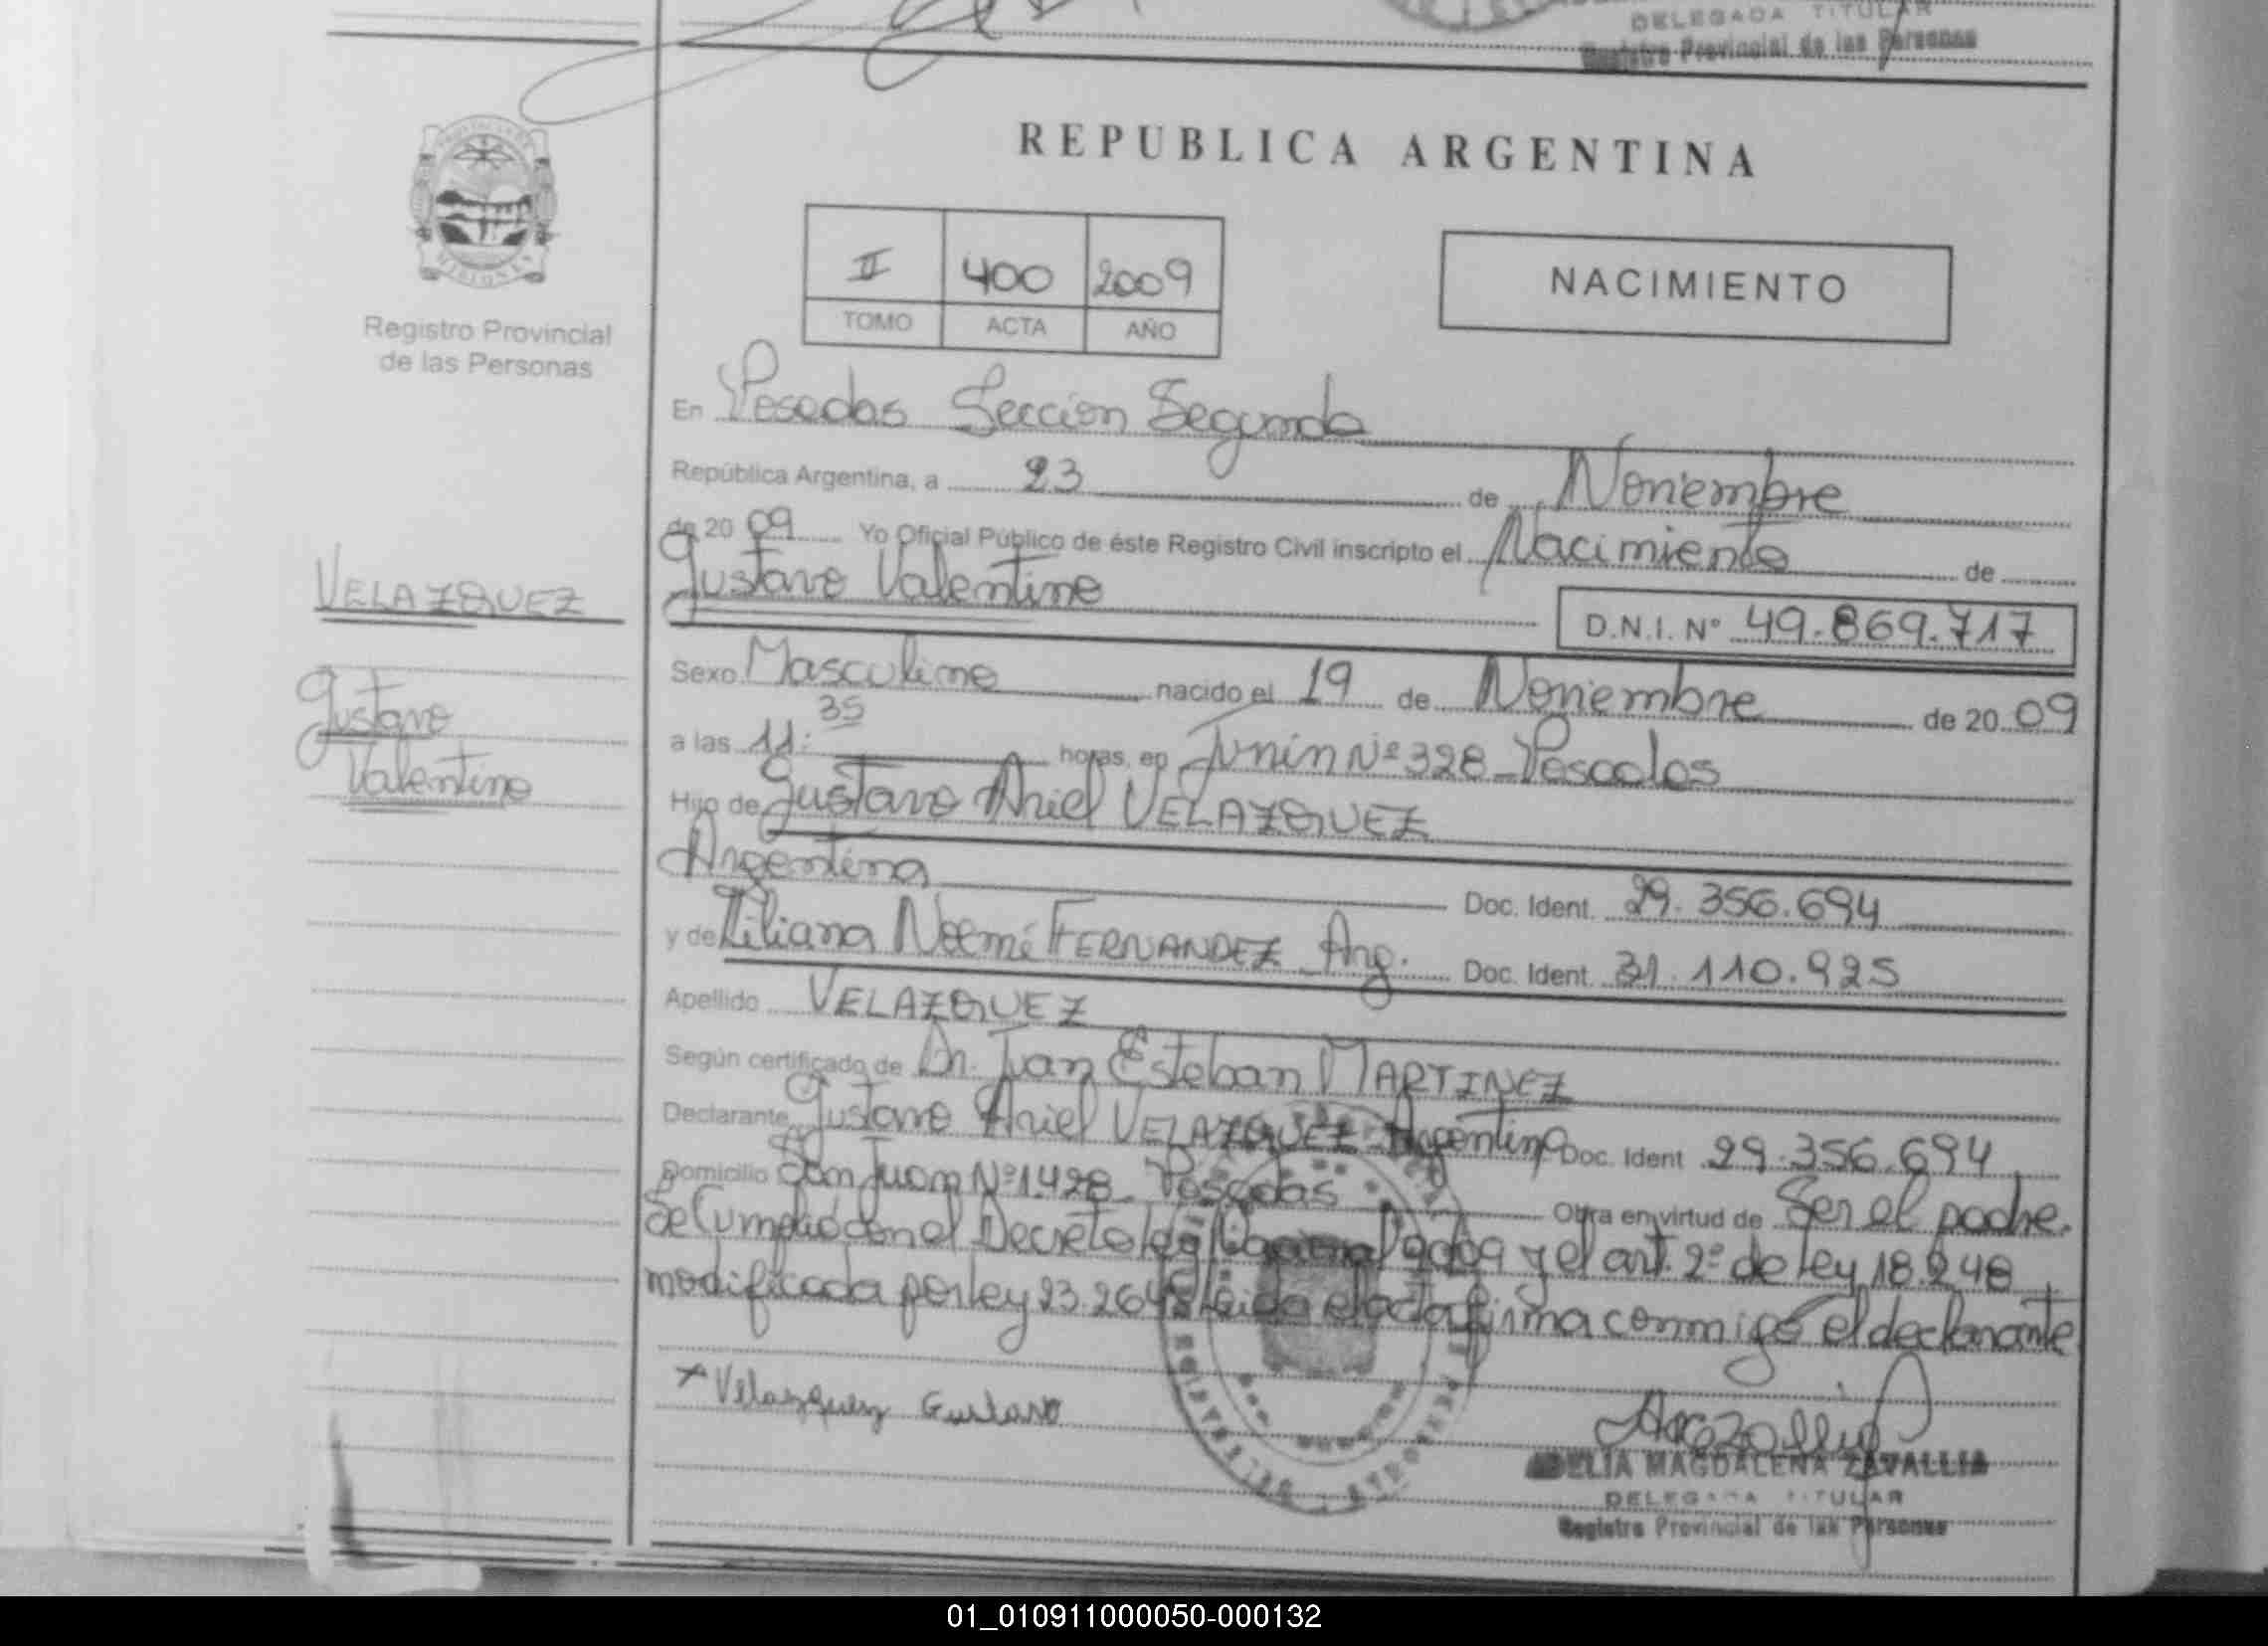 DELEGADA TITULAR
Registro Provincial de las Personas
PROVINCIA DE
MISIONES
Registro Provincial
de las Personas
REPUBLICA ARGENTINA
II 400 2009
TOMO ACTA AÑO
NACIMIENTO
En Posadas Sección Segunda
República Argentina, a 23 de Noviembre
de 20 09 Yo Oficial Público de éste Registro Civil inscripto el Nacimiento de
Gustavo Valentino
D.N.I. N° 49.869.717
VELAZQUEZ
Gustavo
Valentino
Sexo Masculino nacido el 19 de Noviembre de 20 09
a las 11:35 horas, en Junín Nº 328 - Posadas
Hijo de Gustavo Ariel VELAZQUEZ
Argentina Doc. Ident. 29.356.694
y de Liliana Noemí FERNANDEZ Arg. Doc. Ident. 31.110.925
Apellido VELAZQUEZ
Según certificado de Dr. Juan Esteban MARTINEZ
Declarante Gustavo Ariel VELAZQUEZ - Argentino Doc. Ident 29.356.694
Domicilio San Juan Nº 1.428 - Posadas Obra en virtud de Ser el padre.
Se Cumplió con el Decreto ley Nacional y el art. 2º de ley 18.248
modificada por ley 23.264 Leida el acta firma conmigo el declarante
x Velazquez Gustavo
DELIA MAGDALENA ZAVALLIA
DELEGADA TITULAR
Registro Provincial de las Personas
01_010911000050-000132